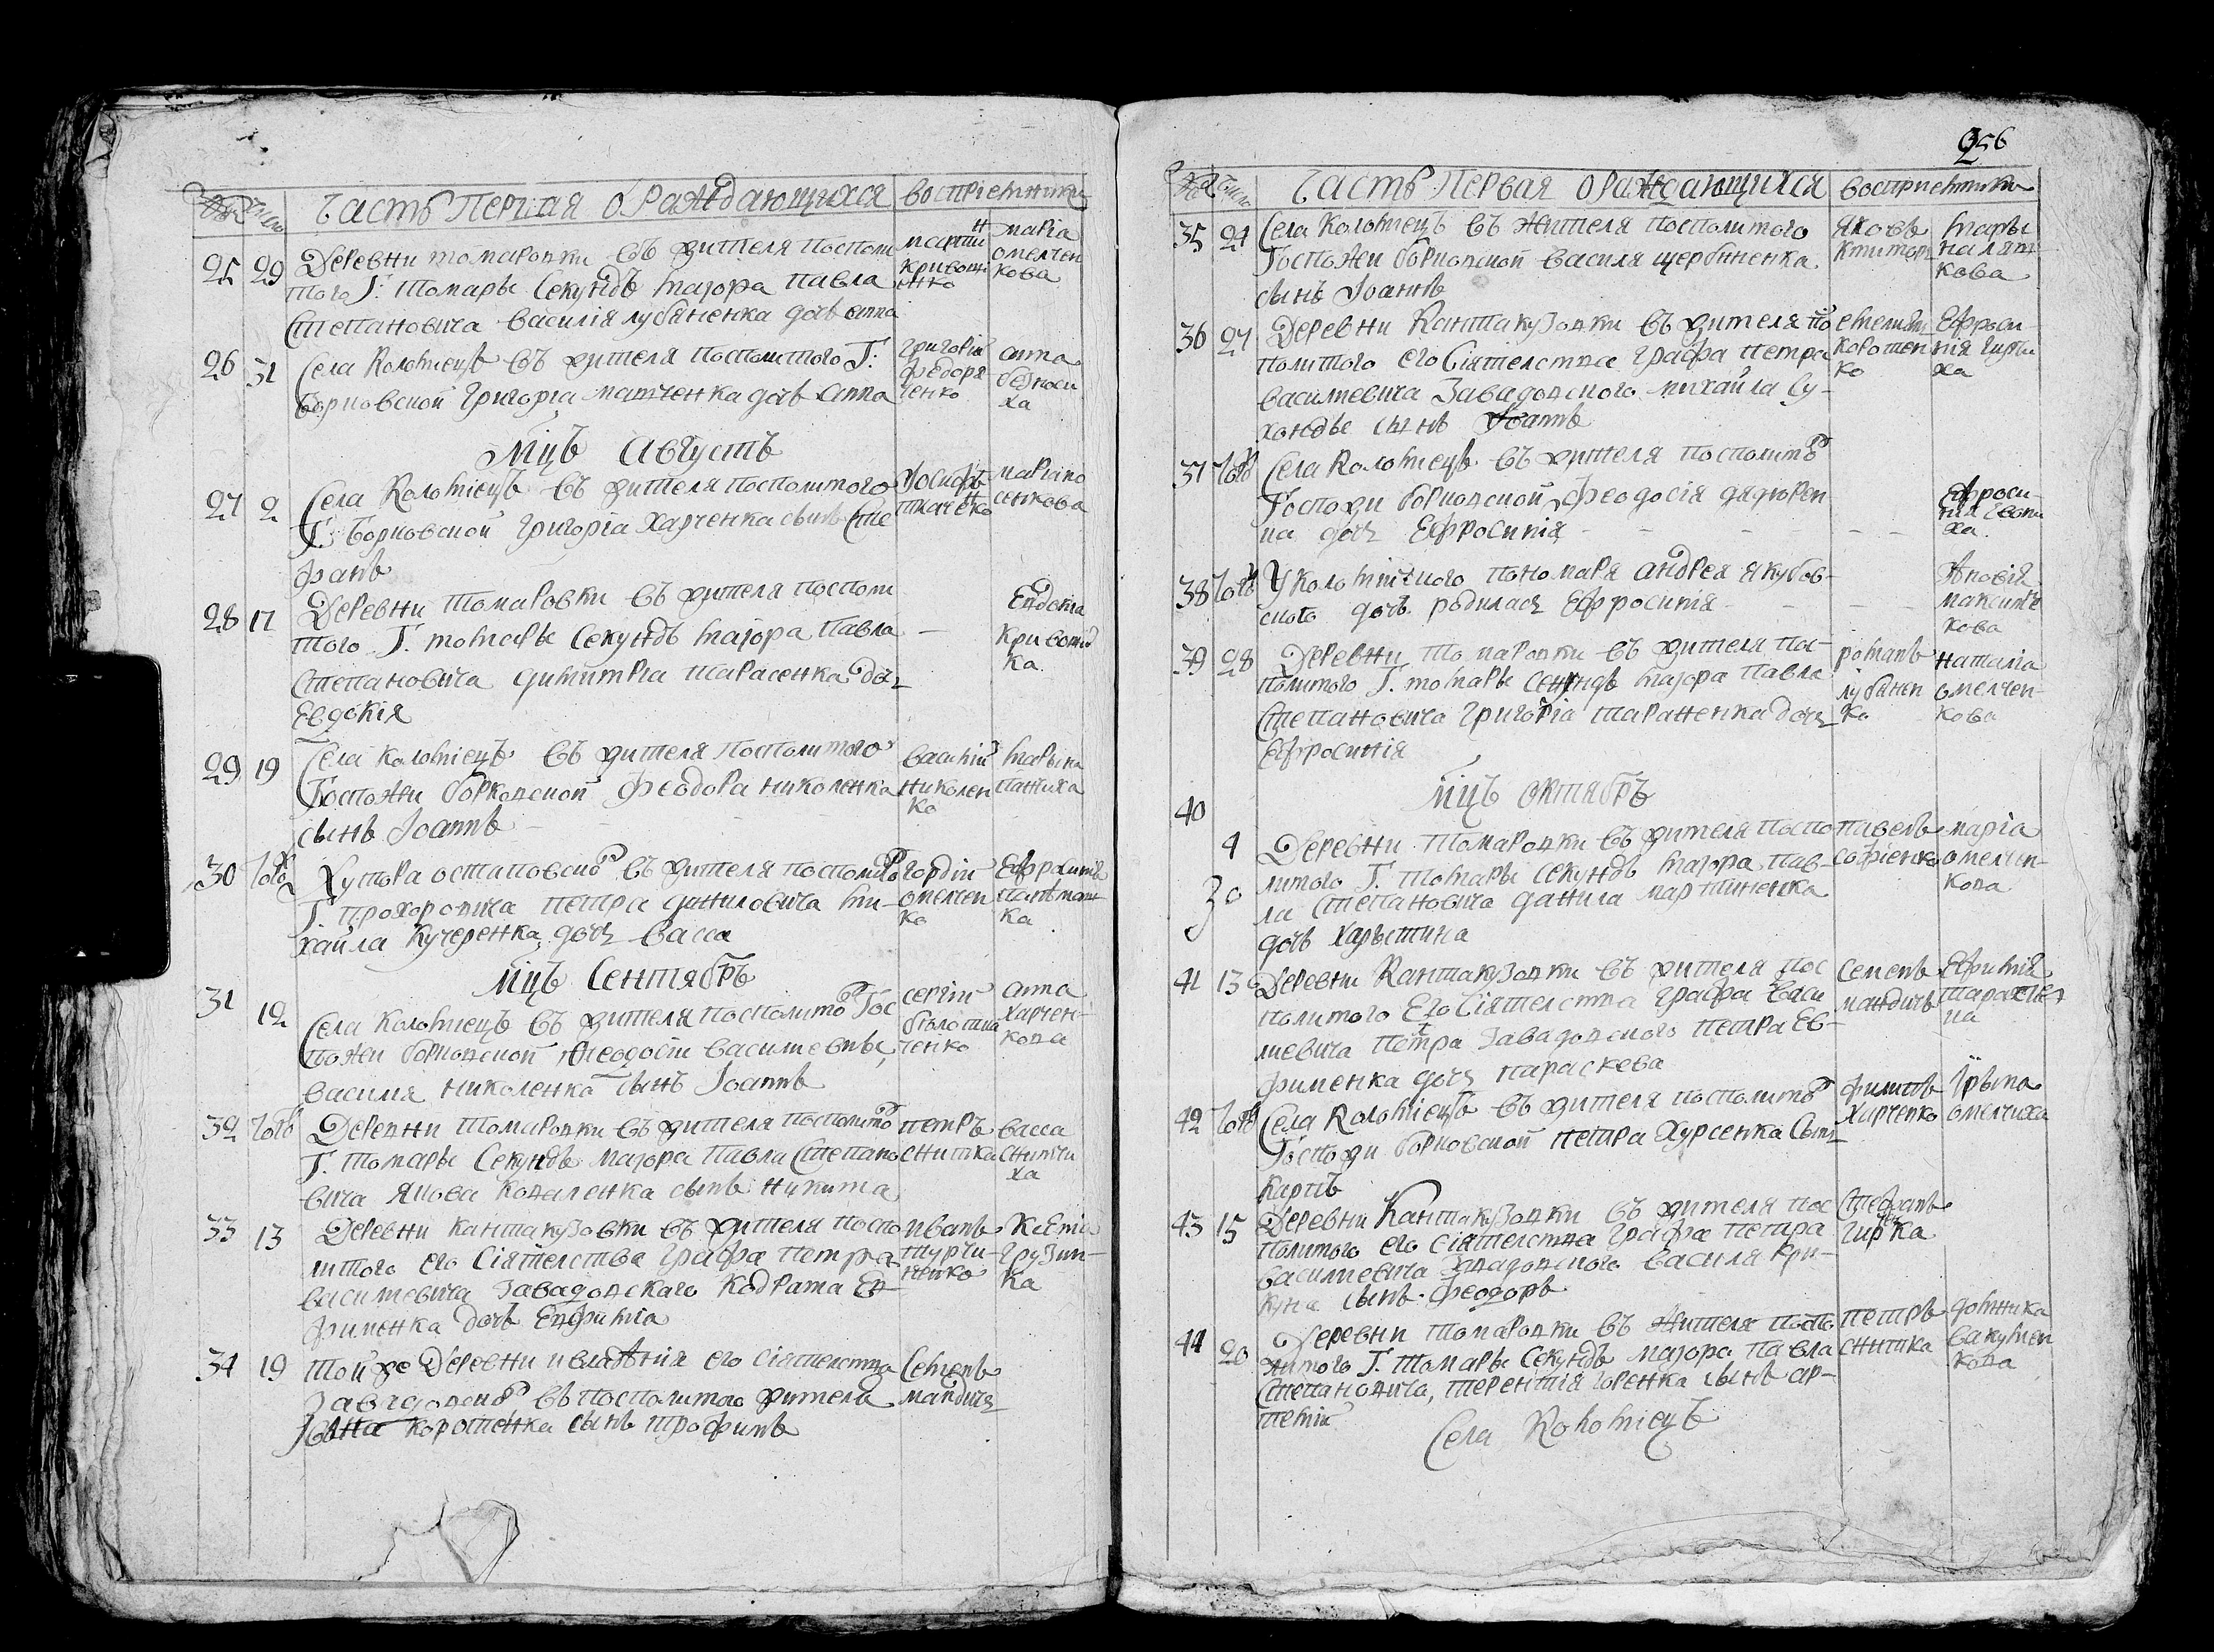 Число Часть Первая о раждающихся воспріемники
25 29 Деревни томаровки въ жителя посполи
того Г: Томары Секундъ маіора Павла
Степановича василія лубяненка дочь анна
мартин кривошіенко
марія омелченкова
26 31 Села Коломіецъ въ жителя посполитого Г:
Борковской Григорія матченка дочь анна
григорій федорященко
анна
Мцъ Августъ
27 2 Села Коломіецъ въ жителя посполитого
Г: Борковской Григорія Харченка сынъ Сте
фанъ
Іосифъ ткаченко
28 17 Деревни Томаровки въ жителя посполи
того Г. томары Секундъ маіора Павла
Степановича димитрія тарасенка доч
Евдокія
Евдокіа
29 19 Села Коломіецъ въ жителя посполитого
Госпожи борковской феодора николенка
сынъ Іоаннъ
василій николенко
марына панчиха
30 тогож Хутора остаповс въ жителя посполито
Г прохоровича петра даниловича ми-
хайла Кучеренка дочъ васса
гордій омелченко
Ефросинія
Мцъ Сентябръ
31 12 Села Коломіецъ въ жителя посполито Гос
пожи борковской феодосіи василиевны
василя николенка сынъ Іоаннъ
сергій
анна харчен-
кова
32 тогож Деревни Томаровки въ жителя посполито
Г. Томары Секундъ маіора Павла Степано
вича Якова Коваленка сынъ никита
петръ снитка
васса снитчи
ха
33 13 Деревни кантакузовки въ жителя поспо
литого его Сіятелства графа петра
василиевича Завадовскаго Кодрата Ев
фименка дочъ Евфиміа
иванъ турчи-
ненко
Ксеніа грузин-
ка
34 19 Той же Деревни и владѣнія его сіятелства
завадовск въ посполитого жителя
Івана коротенка сынъ трофимъ
Семенъ
мандичъ
256
Число Часть Первая о раждающихся восприемники
35 24 Села Коломіецъ въ жителя посполитого
Госпожи борковской василя щербиненка
сынъ Іоаннъ
Яковъ
ктиторъ
36 27 Деревни Кантакузовки въ жителя по
политого его Сіятелства графа петра
василиевича Завадовского михайла Су-
ховды сынъ Іоаннъ
емелиян
коротен
ко
Ефроси-
нія
37 тогож Села Коломіецъ въ жителя посполит
Госпожи борковской феодосія дядюрен
ка дочъ Ефросинія
Ефроси-
нія
38 тогож У коломійского пономаря андрея якубов-
ского дочъ родилась Ефросинія
39 28 Деревни Томаровки въ жителя пос-
политого Г. томары секундъ маіора павла
Степановича григорія тараненка дочъ
Ефросинія
романъ
лубянен
ко
наталіа
омелчен-
кова
Мцъ Октябръ
40 4 Деревни Томаровки въ жителя поспо
литого Г. томары секундъ маіора пав-
ла степановича данила мартиненка
дочъ харытина
павелъ
софіенко
маріа
омелчен-
кова
41 13 Деревни Кантакузовки въ жителя пос
политого Его Сіятелства графа васи
лиевича петра завадовского петра Ев-
фименка дочъ параскева
Семенъ
мандичъ
Ефимія
42 тогож Села Коломіецъ въ жителя посполит
Госпожи борковской петра Хурсенка сынъ
карпъ
филипъ
харченко
Ірына
омелчиха
43 15 Деревни Кантакузовки въ жителя пос
политого его сіятелства графа петра
василиевича завадовского василя кри-
куна сынъ феодоръ
Стефанъ
гирка
44 20 Деревни томаровки въ жителя поспо
литого Г. томары Секундъ маіора павла
Степановича, терентія горенка сынъ ар-
темій
петръ
снитка
домника
вакумен
кова
Села Коломіецъ